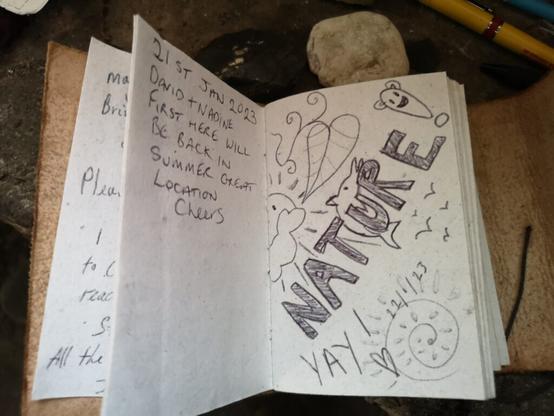 ma
Bri
Plea
I
to
reac
S
All the
21ST JAN 2023
DAVID + NADINE
FIRST HERE WILL
BE BACK IN
SUMMER GREAT
LOCATION
Cheers
NATURE
YAY!
22/1/23